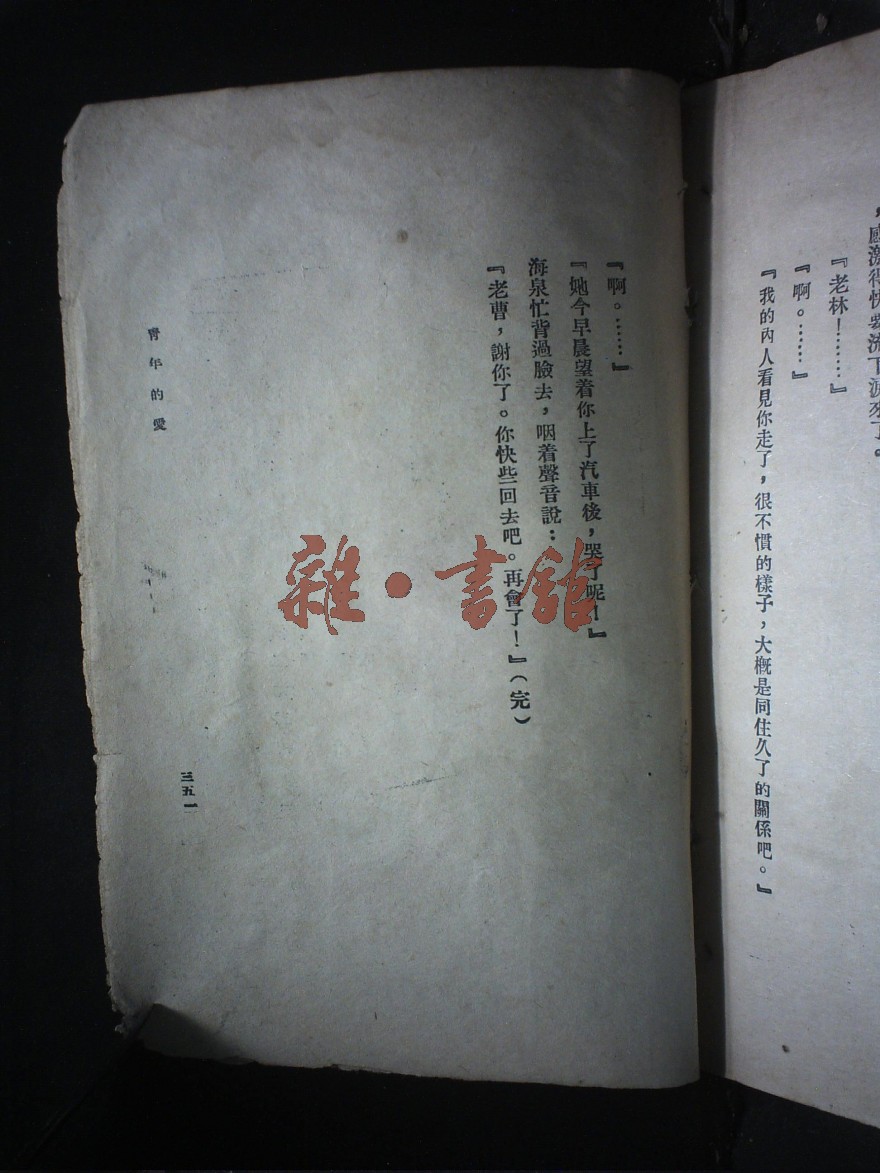 ，感激得快要流下淚來了。
『老林！………』
『啊。……』
『我的內人看見你走了，很不慣的樣子，大概是同住久了的關係吧。』
『啊。……』
『她今早晨望着你上了汽車後，哭了呢！』
海泉忙背過臉去，咽着聲音說：
『老曹，謝你了。你快些回去吧。再會了！』（完）
青年的愛
三五一
雜·書館